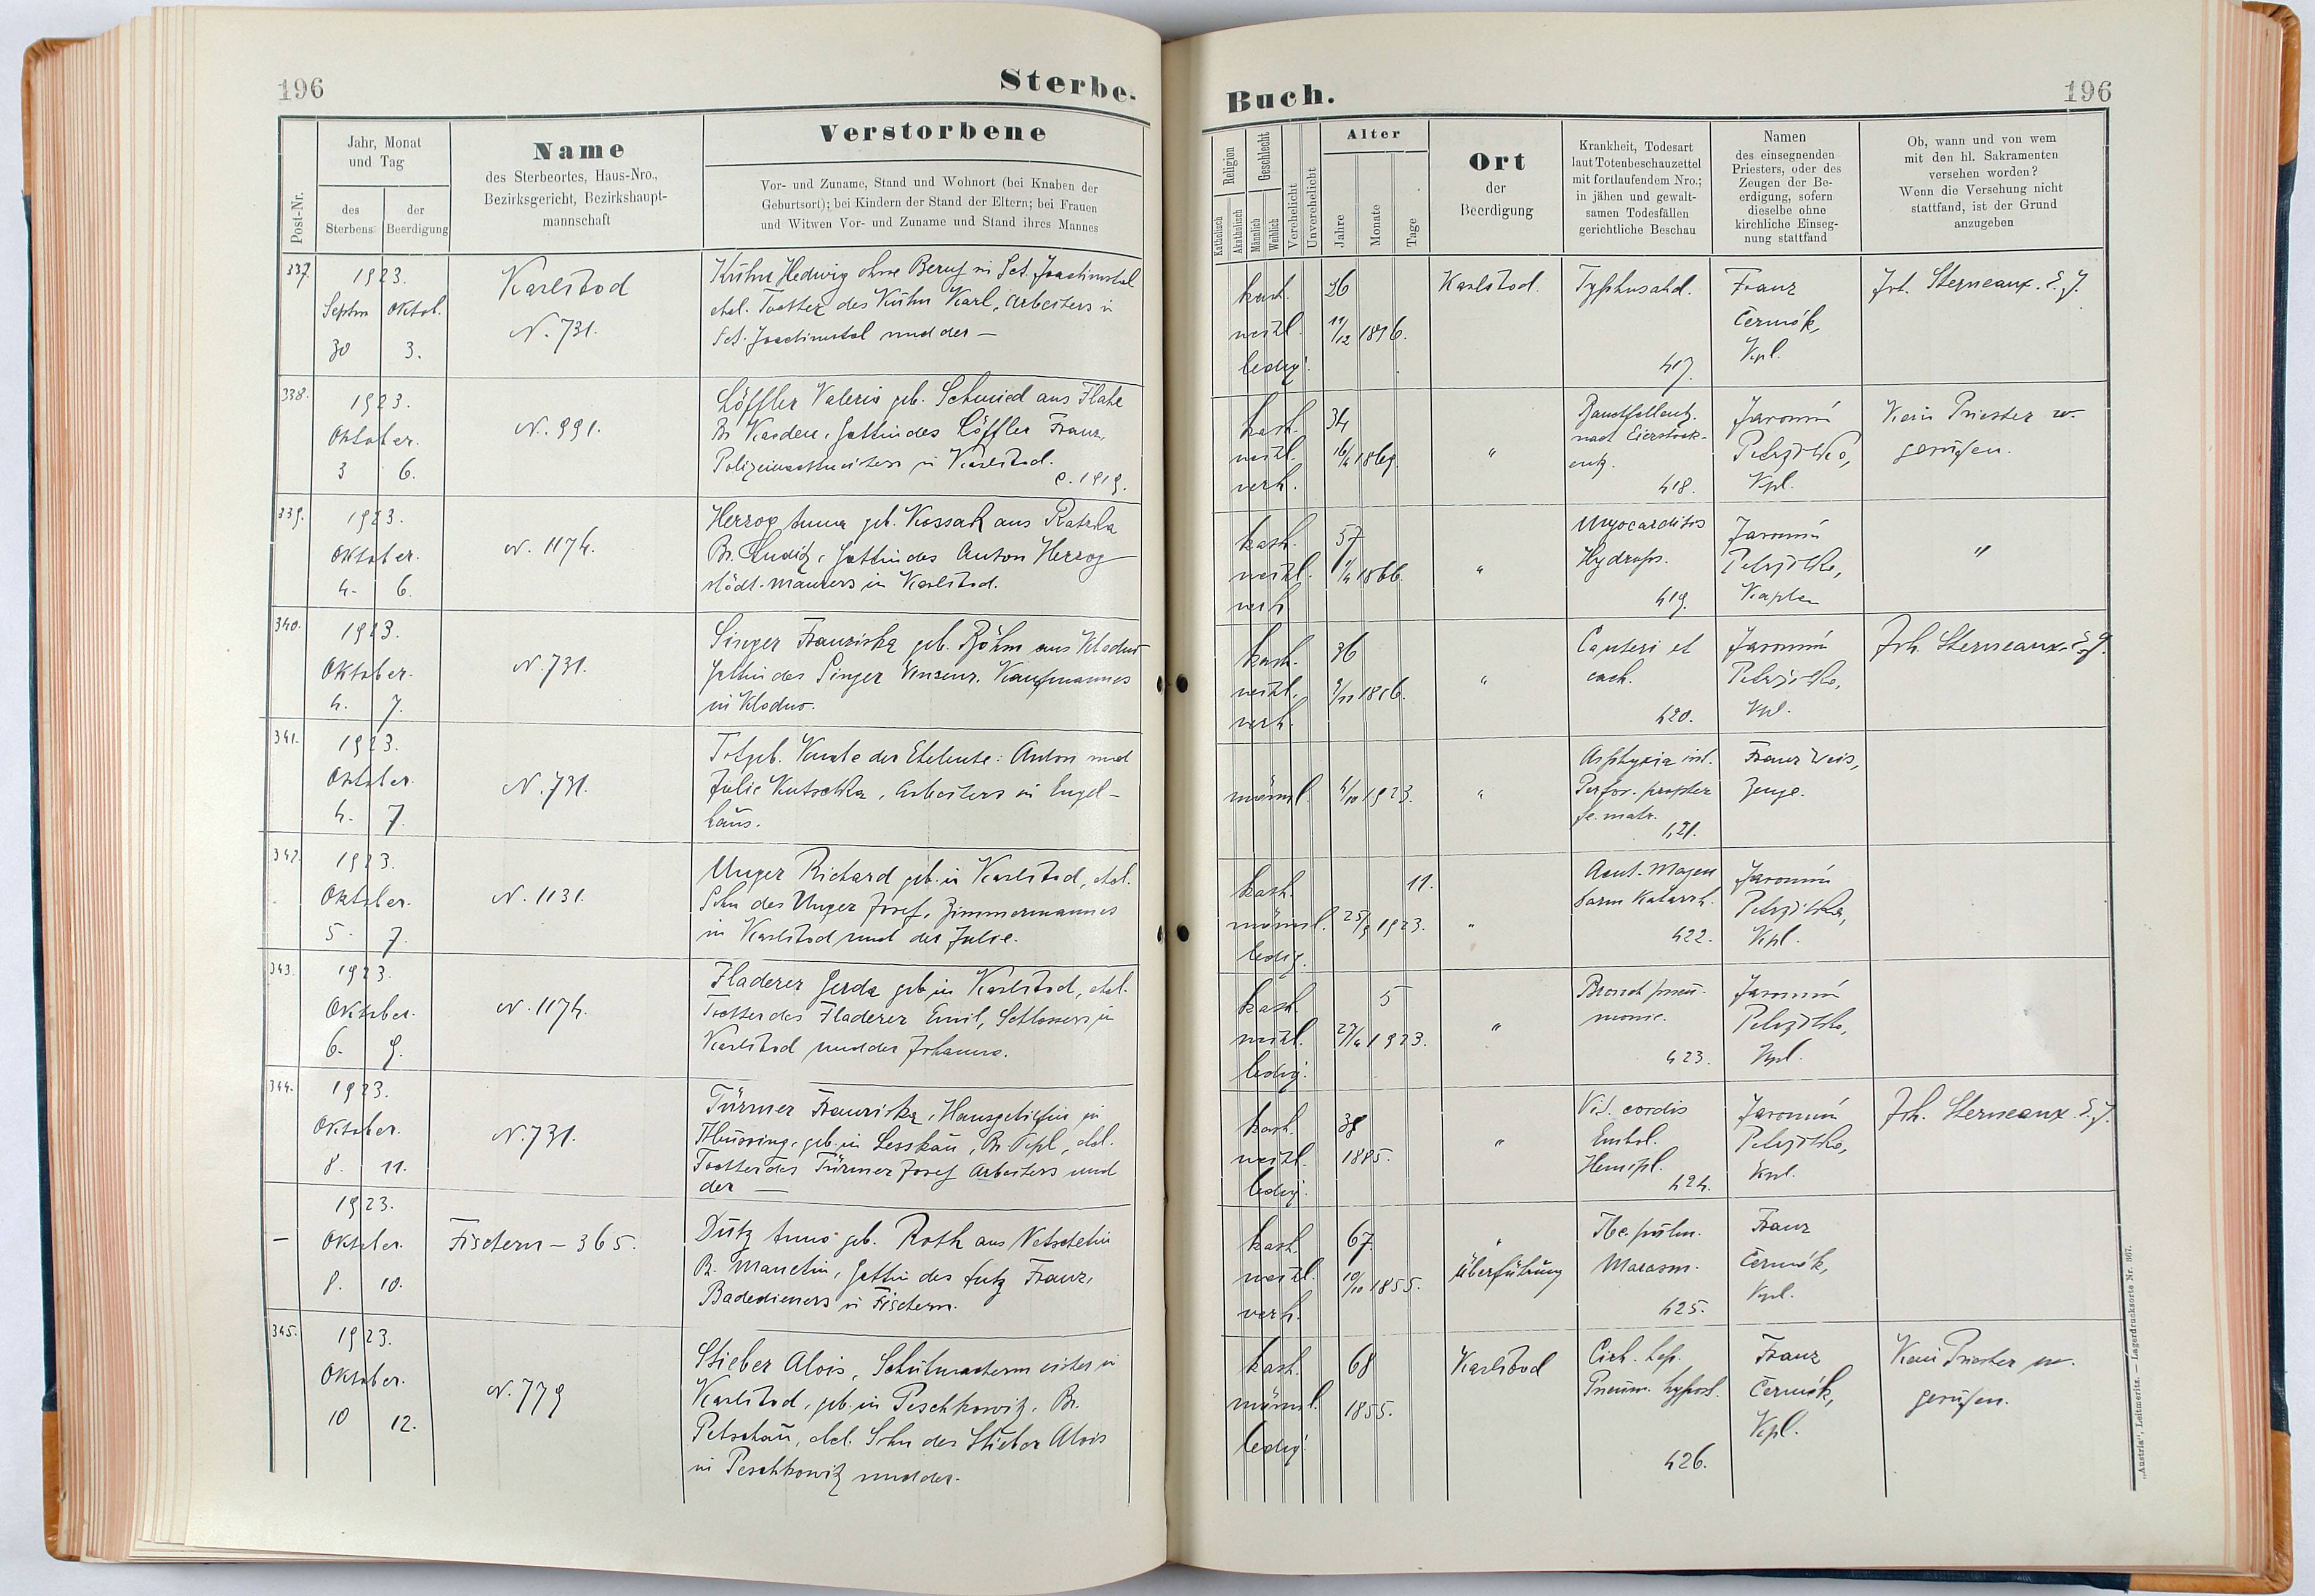 196
Sterbe-
Buch.
196
Post-Nr.
Jahr, Monat
und Tag
des
Sterbens
der
Beerdigung
Name
des Sterbeortes, Haus-Nro.,
Bezirksgericht, Bezirkshaupt-
mannschaft
Verstorbene
Vor- und Zuname, Stand und Wohnort (bei Knaben der
Geburtsort); bei Kindern der Stand der Eltern; bei Frauen
und Witwen Vor- und Zuname und Stand ihres Mannes
Religion
Katholisch
Akatholisch
Geschlecht
Männlich
Weiblich
Verehelicht
Unverehelicht
Alter
Jahre
Monate
Tage
Ort
der
Beerdigung
Krankheit, Todesart
laut Totenbeschauzettel
mit fortlaufendem Nro.;
in jähen und gewalt-
samen Todesfällen
gerichtliche Beschau
Namen
des einsegnenden
Priesters, oder des
Zeugen der Be-
erdigung, sofern
dieselbe ohne
kirchliche Einseg-
nung stattfand
Ob, wann und von wem
mit den hl. Sakramenten
versehen worden?
Wenn die Versehung nicht
stattfand, ist der Grund
anzugeben
337.
1923.
Septm Oktob.
30 3.
Karlsbad
N. 731.
Kühn Hedwig ohne Beruf in Sct. Joachimstal
ehel. Tochter des Kühn Karl, Arbeiters in
Sct. Joachimstal und der —
kath. 26
weibl. 11/12 1896.
ledig.
Karlsbad.
Typhusabd.
417.
Franz
Čermák,
Kpl.
Joh. Sterneaux. S. J.
338.
1923.
Oktober.
3 6.
N. 991.
Löffler Valerie geb. Schmied aus Flahe
Br. Kaaden, Gattin des Löffler Franz,
Polizeiwachtmeisters in Karlsbad.
C. 1919.
kath. 34
weibl. 1869.
verh.
"
Bauchfellentz.
nach Eierstock-
entz.
418.
Jaromír
Kpl.
Kein Priester
gerufen.
339.
1923.
Oktober.
4. 6.
N. 1174.
Herzog Anna geb. Kossak aus Ratzka
Br. Luditz, Gattin des Anton Herzog
städt. Maurers in Karlsbad.
kath. 57
weibl. 1866.
verh.
"
Myocarditis
Hydrops.
419.
Jaromír
Kaplan
"
340.
1923.
Oktober.
4. 7.
N. 731.
Singer Franziska geb. Böhm aus Kladno
Gattin des Singer Vinzenz, Kaufmannes
in Kladno.
kath. 36
weibl.
verh.
"
cach.
420.
Jaromír
Kpl.
Joh. Sterneaux. S. J.
341.
1923.
Oktober.
4. 7.
N. 731.
Totgeb. Knabe der Eheleute: Anton und
Julie Kutschka, Arbeiters in Engel-
haus.
männl. 4/10 1923.
"
Asphyxia int.
Perfor. propter
421.
Franz Weis,
Zeuge.
342.
1923.
Oktober.
5. 7.
N. 1131.
Unger Richard geb. in Karlsbad, ehel.
Sohn des Unger Josef, Zimmermannes
in Karlsbad und der Julie.
kath. 11.
männl. 25/9 1923.
ledig.
"
Acut. Magen
darm Katarrh.
422.
Jaromír
Kpl.
343.
1923.
Oktober.
6. 9.
N. 1174.
Fladerer Gerda geb in Karlsbad, ehel.
Tochter des Fladerer Emil, Schlossers in
Karlsbad und der Johanna.
kath. 5
weibl. 27/4 1923.
ledig.
"
Bronchpneu-
monie.
423.
Jaromír
Kpl.
344.
1923.
Oktober.
8. 11.
N. 731.
Türmer Franziska, Hausgehilfin in
geb. in Lesskau, Br. Tepl, ehel.
Tochter des Türmer Josef Arbeiters und
der —
kath. 38
weibl. 1885.
ledig.
"
Vit. cordis
Embol.
Hemipl.
424.
Jaromír
Kpl.
Joh. Sterneaux. S. J.
—
1923.
Oktober.
8. 10.
Fischern — 365.
Dutz Anna geb. Roth aus Netschetin
B. Manetin, Gattin des Dutz Franz,
Badedieners in Fischern.
kath. 67.
weibl. 10/10 1855.
verh.
"
Überführung
Tbc. pulm.
Marasm.
425.
Franz
Čermák,
Kpl.
345.
1923.
Oktober.
10 12.
N. 779
Stieber Alois, Schuhmachermeister in
Karlsbad, geb. in Peschkowitz, Br.
Petschau, ehel. Sohn des Stieber Alois
in Peschkowitz und der.
kath. 68
männl. 1855.
ledig.
Karlsbad
Cirh. hep.
Pneum. hypost.
426.
Franz
Čermák,
Kpl.
Kein Priester
gerufen.
„Austria“, Leitmeritz. — Lagerdrucksorte Nr. 367.